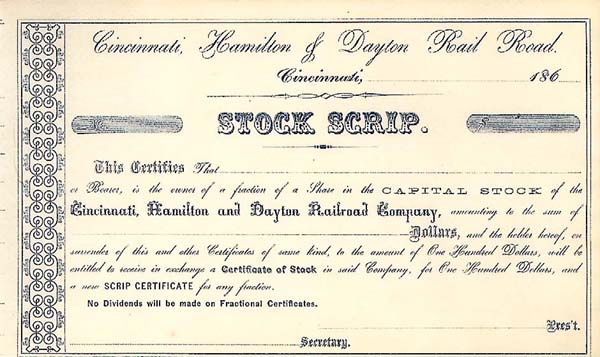 Cincinnati, Hamilton & Dayton Rail Road.
Cincinnati, 186
No. $
STOCK SCRIP.
This Certifies That
or Bearer, is the owner of a fraction of a Share in the CAPITAL STOCK of the
Cincinnati, Hamilton and Dayton Railroad Company, amounting to the sum of
Dollars, and the holder hereof, on
surrender of this and other Certificates of same kind, to the amount of One Hundred Dollars, will be
entitled to receive in exchange a Certificate of Stock in said Company, for One Hundred Dollars, and
a new SCRIP CERTIFICATE for any fraction.
No Dividends will be made on Fractional Certificates.
Pres't.
Secretary.